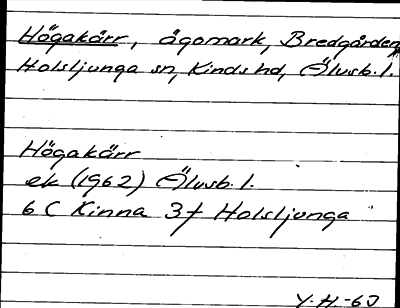 Högakärr, ägomark, Bredgården,
Holsljunga sn, Kinds hd, Älvsb. l.
Högakärr
ek (1962) Älvsb. l.
6 C Kinna 3f Holsljunga
Y.H.-63